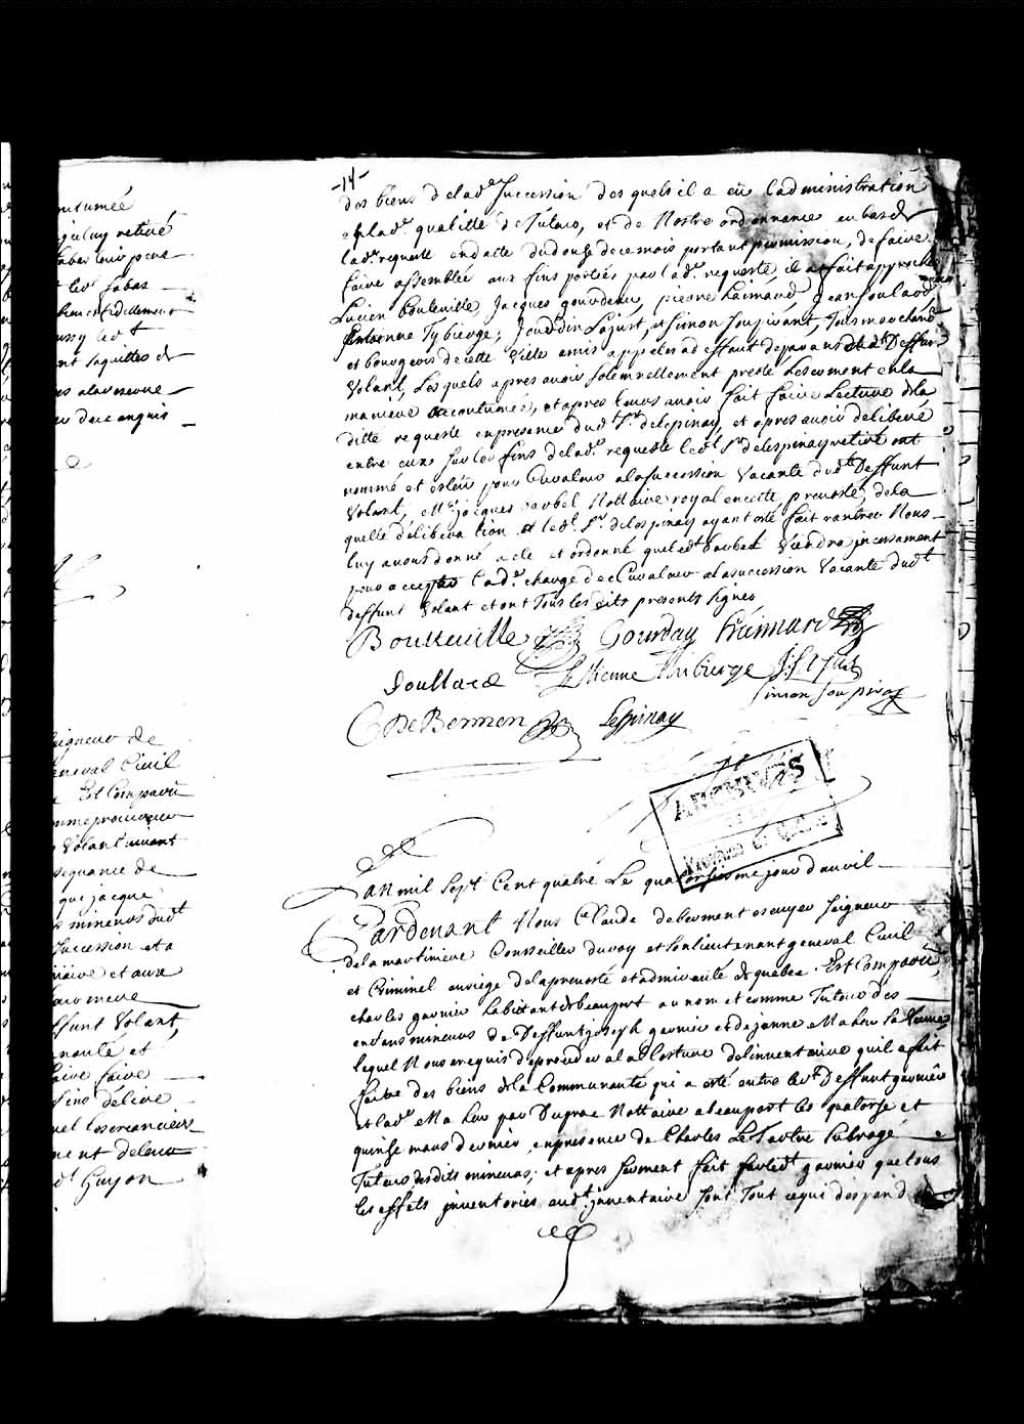 outumée
quluy retiré
led. Sabas
aquittes &
es alavenue
de
aigneur de
eneral Civil
Est Comparu
comme procureur
Volant vivant
sequance de
qui jacque
mineurs dud.t
Succession et a
et aux
ffunt Volant,
nauté et
faire faire
fins delire
uel les creanciers
d.t Guyon
-14-
des biens de lad.e Succession des quels il a eu Ladministration
esd. qualitté de Tuteur, et de Nostre ordonnance en bas de
lad.e requeste en datte du douse de ce mois portant permission, de faire
faire assemblée aux fins portées par lad.e requeste, il a fait approcher
Lucien Bouteville, Jacques gourdeau, pierre haimard, Jean foulard,
Estienne Tybierge, Jourdin Lajust, et Simon Soupirant, Tous marchands
et bourgeois de cette Ville amis appeles ad effaut de parans dud.t Deffunt
Volant, Lesquels apres avoir solemnellement presté Serment en la
maniere accoutumée, et apres leurs avoir fait faire Lecture de la
ditte requeste en presence dud. S.r delespinay, et apres avoir deliberé
entre eux sur les fins de lad.e requeste led.t S.r delespinay retiré ont
nommé et esleu pour Curateur a la succession Vacante dud.t Deffunt
Volant, M.e jacques barbel Nottaire royal en cette prevosté, de la
quelle deliberation et led. S.r delespinay ayant esté fait rentrer Nous
luy avons donné acte et ordonné que led.t barbel Viendra incessament
pour accepter lad.e charge de Curateur a la succession Vacante dud.t
deffunt Volant et ont Tous les dits presents signes
Boutteuille Gourdau haimard
foullard Estienne Thibierge J: L just
simon Soupiran
C De Bermen Lespinay
ARCHIVES
Province de Québec
Lan mil Sept Cent quatre Le quatorsiesme jour d'auril
Pardevant Nous Claude debermen escuyer Seigneur
de la martiniere Conseiller du roy et son lieutenant general Civil
et Criminel au siege de la prevosté et admirauté de quebec. Est Comparu
charles garnier habitant de beauport au nom et comme Tuteur des
enfans mineurs de Deffunt joseph garnier et de janne Maheu sa femme
lequel Nous a requis de proceder a la Closture de linventaire quil a fait
faire des biens de la Communauté qui a esté entre led.t Deffunt garnier
et lad.e Maheu par Duprac Nottaire a beauport les quatorse et
quinse mars dernier, en presence de Charles Le Tartre Subrogé
Tuteur desdits mineurs; et apres serment fait par led.t garnier que tous
les effets inventories aud.t inventaire sont Tout ce qui despend